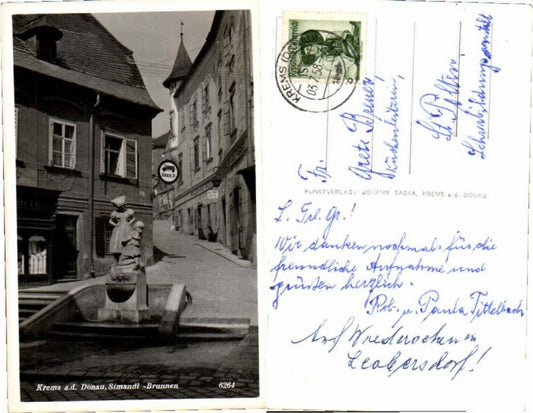 Krems a.d. Donau, Simandl-Brunnen 6264
KREMS (DONAU)
03.7.53
Fr.
Grete Breuer
St. Pölten
Lehrerbildungsanstalt
KUNSTVERLAG: JOHANN SASKA, KREMS a.d. DONAU
L. Frl. Gr.!
Wir danken nochmals für die
freundliche Aufnahme und
grüßen herzlich.
Rob. u. Paula Tittelbach
Auf Wiedersehen in
Leobersdorf!